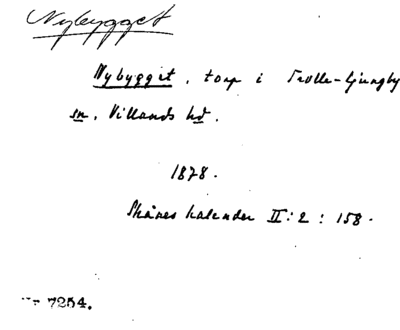 Nybygget
Nybygget, torp i Trolle-Ljungby
sn, Villands hd.
1878.
Skånes kalender II:2:158.
7254.